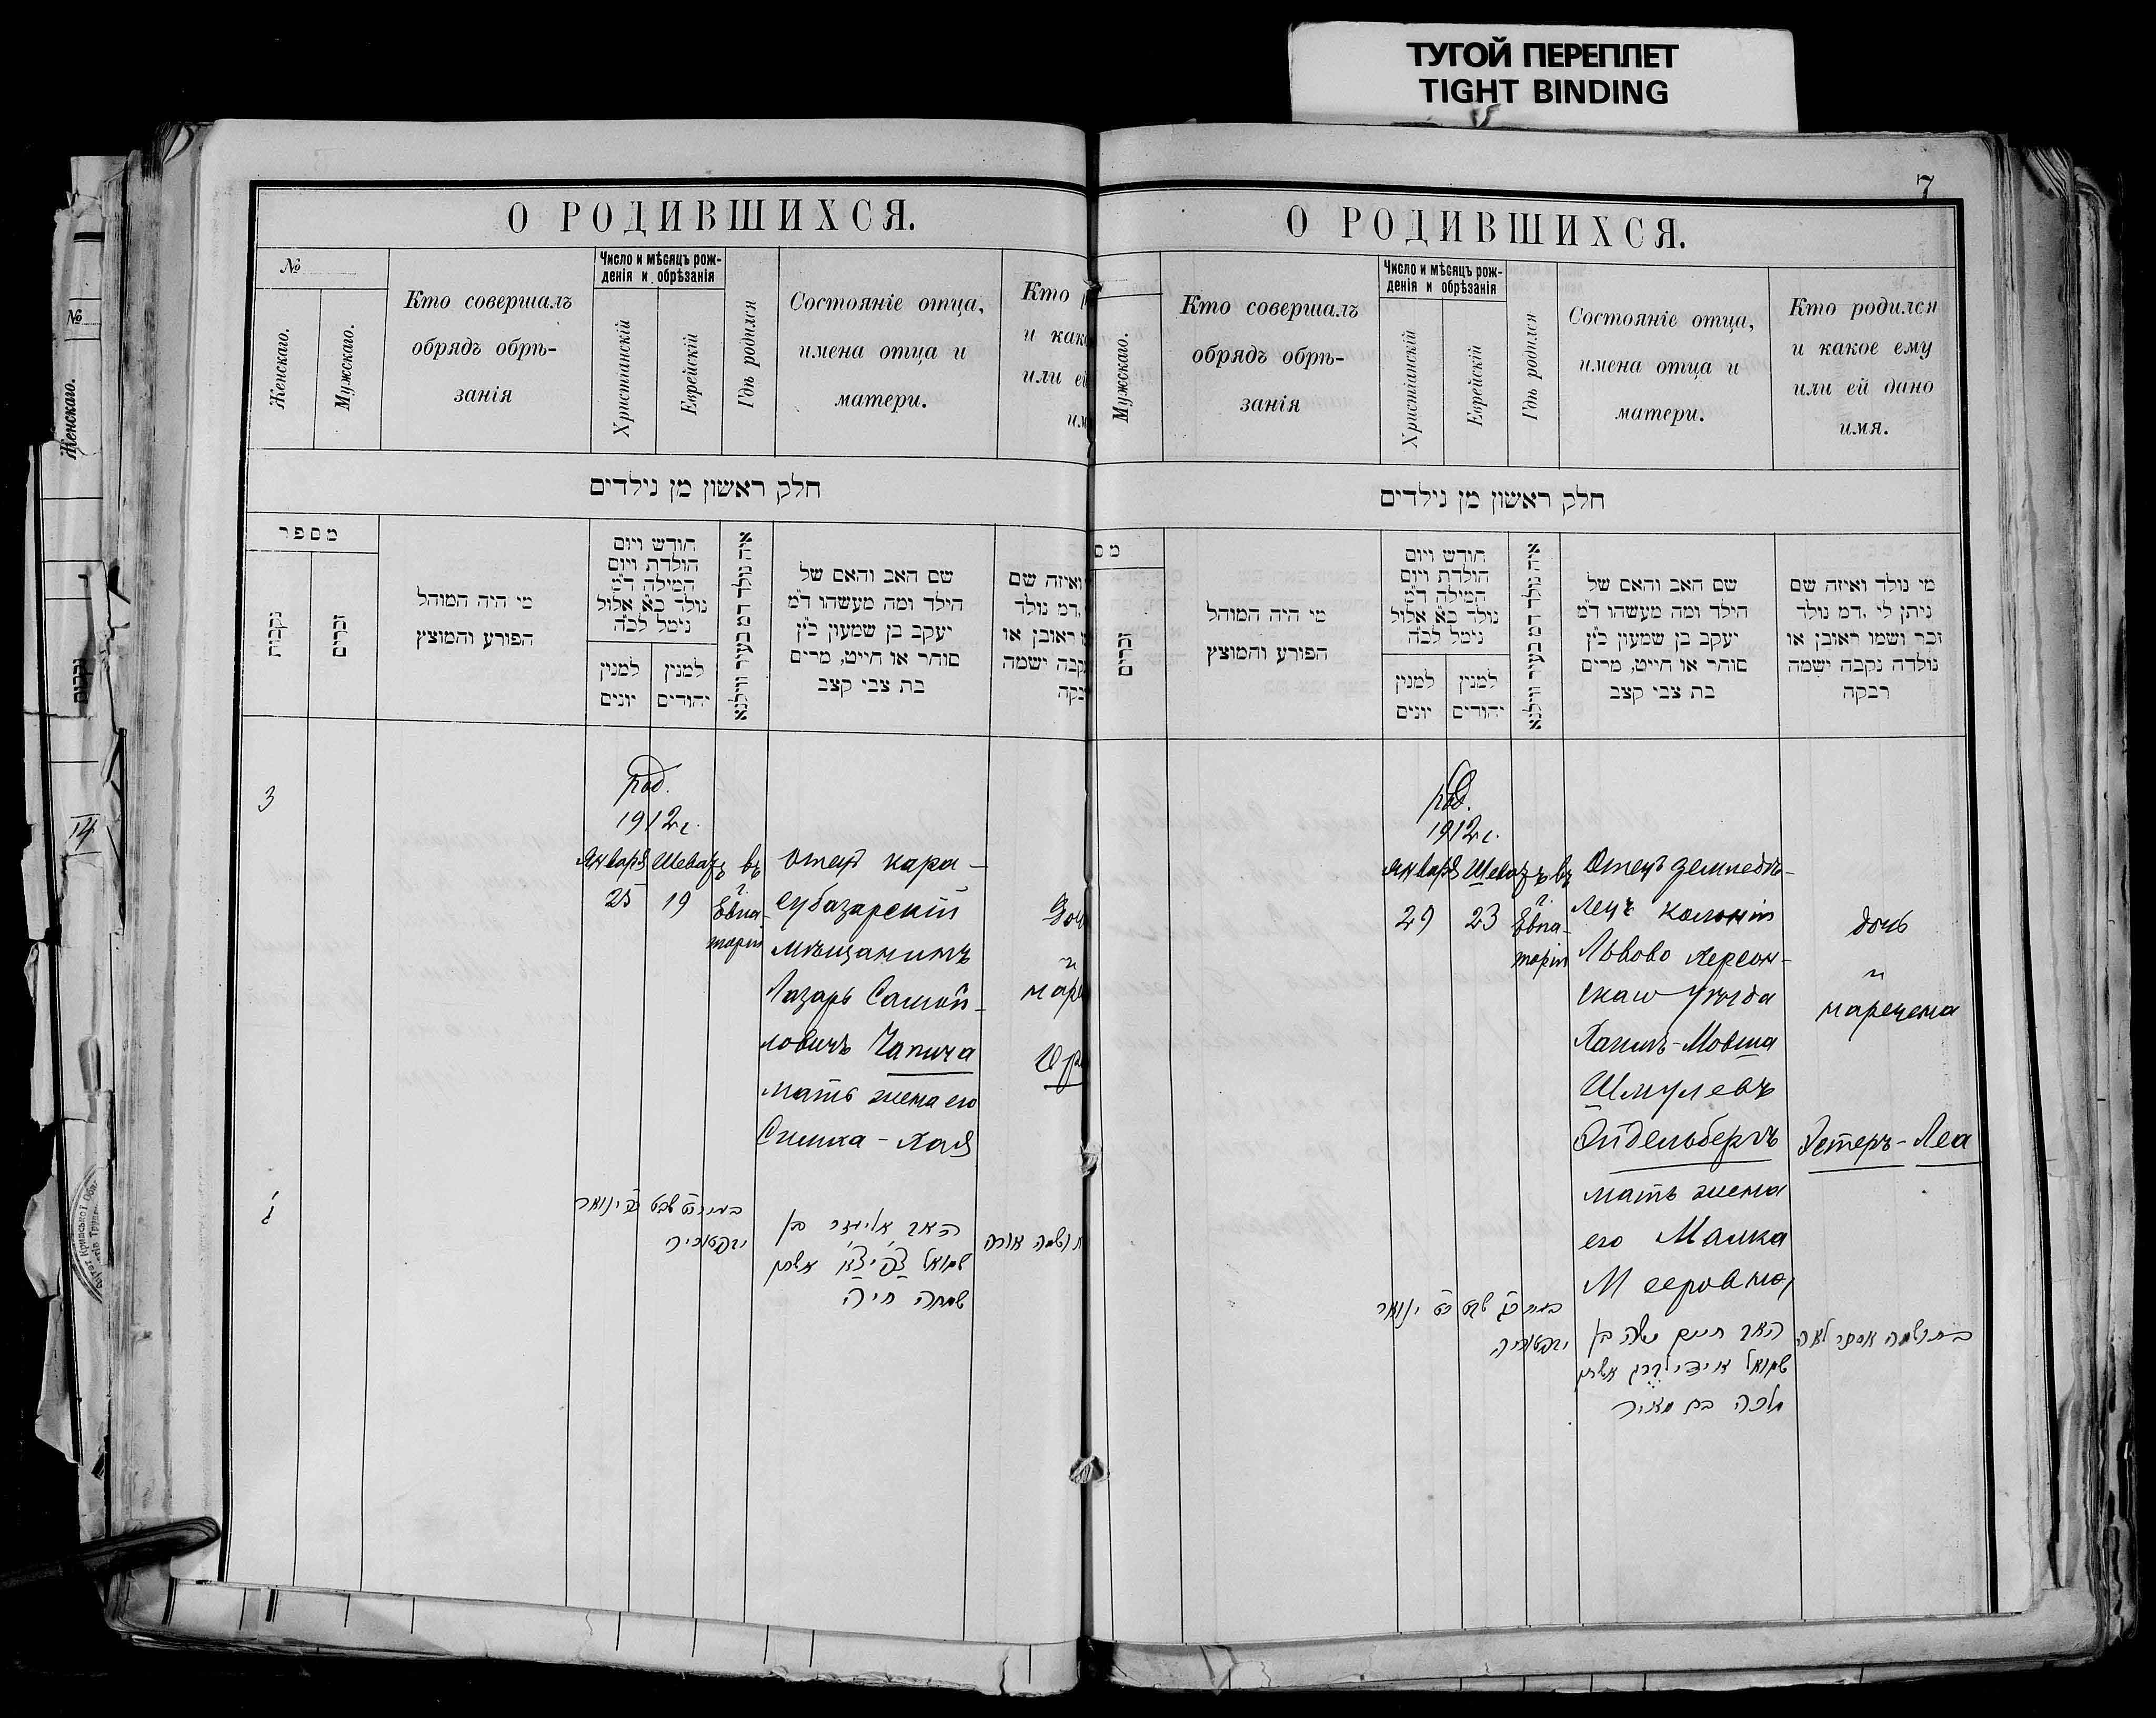 ТУГОЙ ПЕРЕПЛЕТ
TIGHT BINDING
О РОДИВШИХСЯ.
№
Женскаго.
Мужскаго.
Кто совершалъ
обрядъ обрѣ-
занія
Число и мѣсяцъ рож-
денія и обрѣзанія
Христіанскій
Еврейскій
Гдѣ родился
Состояніе отца,
имена отца и
матери.
Кто
и как
или ей
им
חלק ראשון מן נילדים
מספר
נקבות
זכרים
מי היה המוהל
הפורע והמוצץ
חודש ויום
הולדת ויום
המילה ד״מ
נולד כ״א אלול
נימל לכ״ה
למנין
יונים
למנין
יהודים
איה נולד דמ בעיר ווילנא
שם האב והאם של
הילד ומה מעשהו ד״מ
יעקב בן שמעון כ״ץ
סוחר או חייט, מרים
בת צבי קצב
ואיזה שם
דמ נולד
ראובן או
נקבה ישמה
3
род.
1912 г.
Января Шеватъ въ
25 19
г.
Евпа-
торіи
Отецъ кара-
субазарскій
мѣщанинъ
Лазарь Самой-
ловичъ Чапича
мать жена его
Симха-Хая
и
האב אליעזר בן
שמואל
שמחה חיה
№
Женскаго.
14
7
О РОДИВШИХСЯ.
Мужскаго.
Кто совершалъ
обрядъ обрѣ-
занія
Число и мѣсяцъ рож-
денія и обрѣзанія
Христіанскій
Еврейскій
Гдѣ родился
Состояніе отца,
имена отца и
матери.
Кто родился
и какое ему
или ей дано
имя.
חלק ראשון מן נילדים
מס
זכרים
מי היה המוהל
הפורע והמוצץ
חודש ויום
הולדת ויום
המילה ד״מ
נולד כ״א אלול
נימל לכ״ה
למנין
יונים
למנין
יהודים
איה נולד דמ בעיר ווילנא
שם האב והאם של
הילד ומה מעשהו ד״מ
יעקב בן שמעון כ״ץ
סוחר או חייט, מרים
בת צבי קצב
מי נולד ואיזה שם
ניתן לי ,דמ נולד
זכר ושמו ראובן או
נולדה נקבה ישמה
רבקה
род.
1912 г.
Января Шеватъ въ
29 23
г.
Евпа-
торіи
Отецъ землевла-
лецъ колоніи
Львово Херсон-
скаго уѣзда
Хаимъ-Мовша
Шмулевъ
Эйдельбергъ
мать жена
его Малка
Мееровна
дочь
и
наречена
Эстеръ-Леа
האב חיים משה בן
שמואל
מלכה בת מאיר